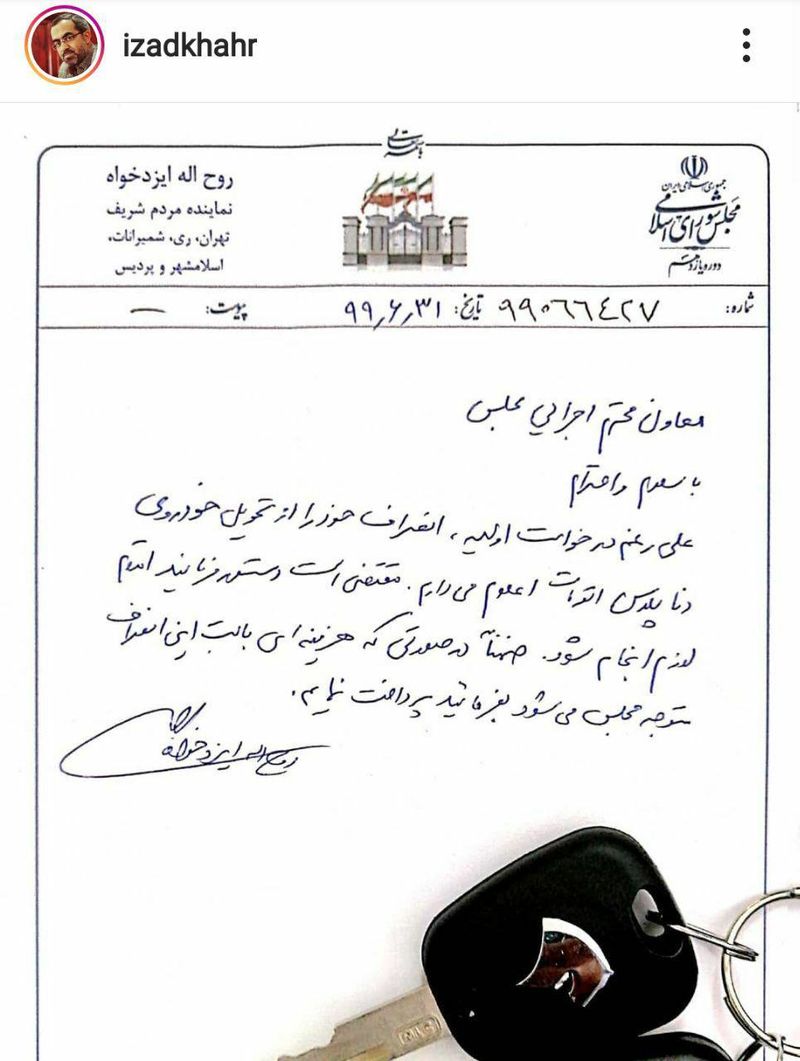 izadkhahr
باسمه تعالی
جمهوری اسلامی ایران
مجلس شورای اسلامی
دوره یازدهم
روح اله ایزدخواه
نماینده مردم شریف
تهران، ری، شمیرانات،
اسلامشهر و پردیس
شماره: ۹۹۰۶۶۴۲۷ تاریخ: ۹۹٫۶٫۳۱ پیوست: —
معاون محترم اجرائی مجلس
با سلام و احترام
علی رغم درخواست اولیه، انصراف خود را از تحویل خودروی
دنا پلاس اتومات اعلام می دارم. مقتضی است دستور فرمائید اقدام
لازم انجام شود. ضمناً در صورتی که هزینه ای بابت این انصراف
متوجه مجلس می شود بفرمائید پرداخت نمایم.
روح اله ایزدخواه